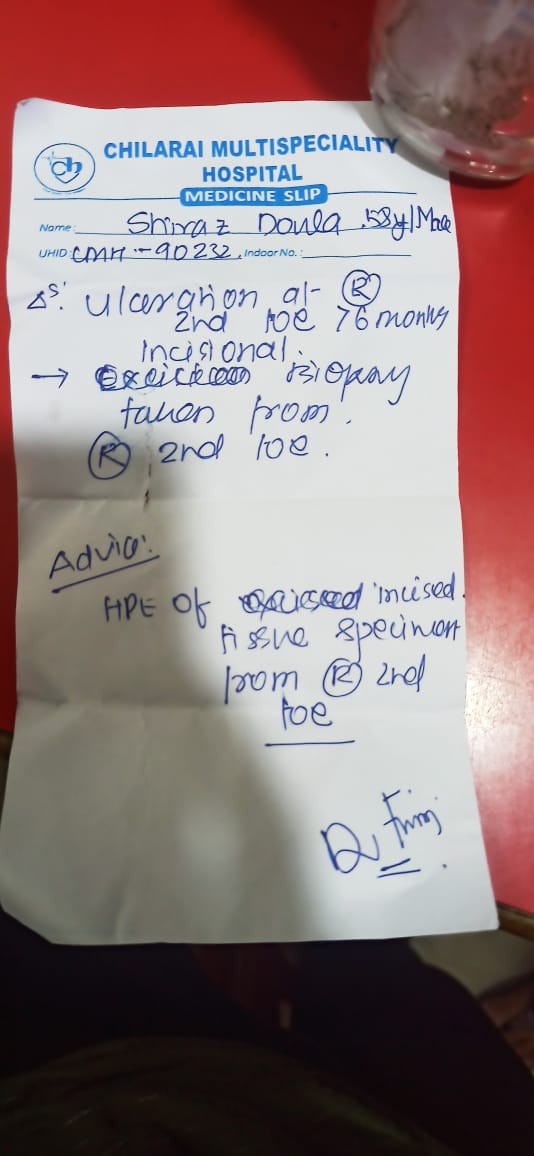 ch
CHILARAI MULTISPECIALITY
HOSPITAL
MEDICINE SLIP
Name: Shiraz Doula . 58y/Male
UHID: CMH - 90232. Indoor No.:
Δs: Ulceration at Ⓡ
2nd toe >6 months
Incisional.
→ Biopsy
taken from.
Ⓡ 2nd toe.
Advice:
HPE of incised.
tissue specimen
from Ⓡ 2nd
toe